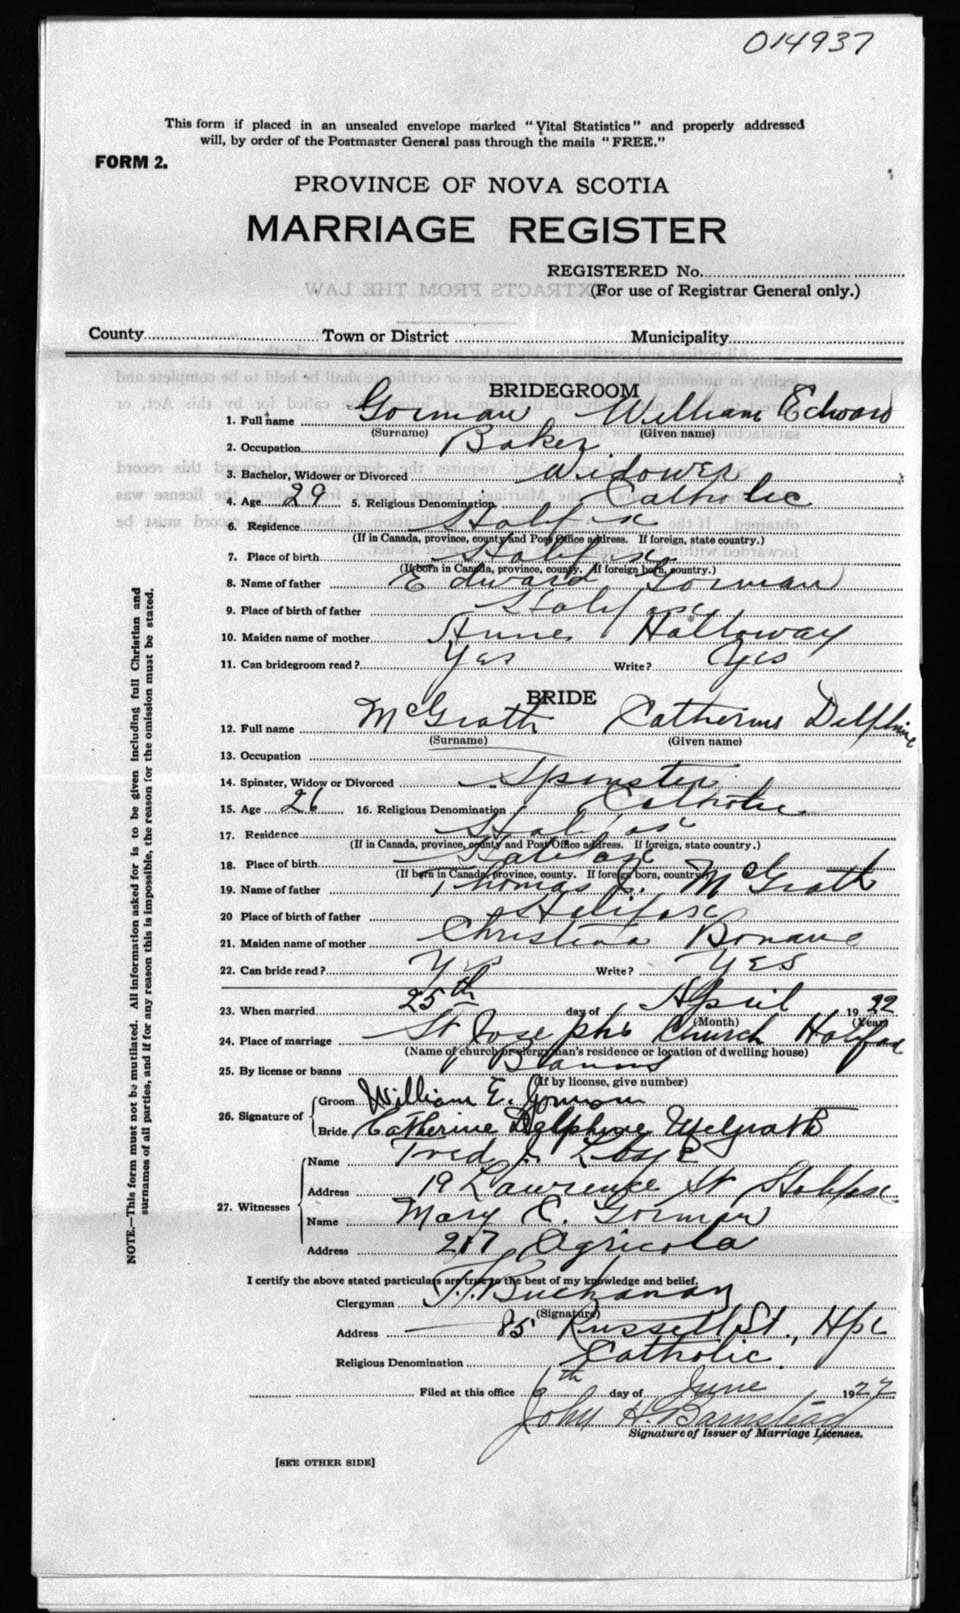 014937
This form if placed in an unsealed envelope marked "Vital Statistics" and properly addressed
will, by order of the Postmaster General pass through the mails "FREE."
FORM 2.
PROVINCE OF NOVA SCOTIA
MARRIAGE REGISTER
REGISTERED No.
(For use of Registrar General only.)
County Town or District Municipality
BRIDEGROOM
1. Full name Gorman William Edward
(Surname) (Given name)
2. Occupation Baker
3. Bachelor, Widower or Divorced Widower
4. Age 29 5. Religious Denomination Catholic
6. Residence Halifax
(If in Canada, province, county and Post Office address. If foreign, state country.)
7. Place of birth Halifax
(If born in Canada, province, county. If foreign born, country.)
8. Name of father Edward Gorman
9. Place of birth of father Halifax
10. Maiden name of mother Anne Holloway
11. Can bridegroom read? Yes Write? Yes
BRIDE
12. Full name McGrath Catherine Delphine
(Surname) (Given name)
13. Occupation
14. Spinster, Widow or Divorced Spinster
15. Age 26 16. Religious Denomination Catholic
17. Residence Halifax
(If in Canada, province, county and Post Office address. If foreign, state country.)
18. Place of birth Halifax
(If born in Canada, province, county. If foreign born, country.)
19. Name of father Thomas J. McGrath
20 Place of birth of father Halifax
21. Maiden name of mother Christina
22. Can bride read? Yes Write? Yes
23. When married 25th day of April 1922
(Month) (Year)
24. Place of marriage St Josephs Church Halifax
(Name of church or clergyman's residence or location of dwelling house)
25. By license or banns Banns
(If by license, give number)
26. Signature of Groom William E. Gorman
Bride Catherine Delphine McGrath
27. Witnesses
Name Fred J.
Address 19 Lawrence St Halifax
Name Mary E. Gorman
Address 217 Agricola
I certify the above stated particulars are true to the best of my knowledge and belief.
Clergyman T. Buchanan
(Signature)
Address 85 Russell St., Hfx
Religious Denomination Catholic
Filed at this office 6th day of June 1922
John H. Barnstead
Signature of Issuer of Marriage Licenses.
[SEE OTHER SIDE]
NOTE.—This form must not be mutilated. All information asked for is to be given including full Christian and
surnames of all parties, and if for any reason this is impossible, the reason for the omission must be stated.